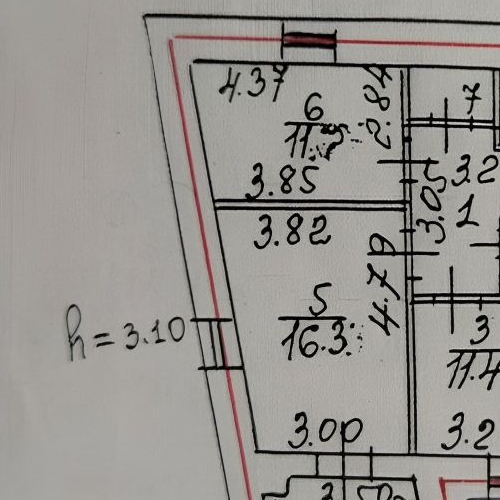 4.37
6
2.84
7
3.85
3.05
3.2
1
3.82
4.79
5
16.3
h = 3.10
3
11.4
3.00
3.2